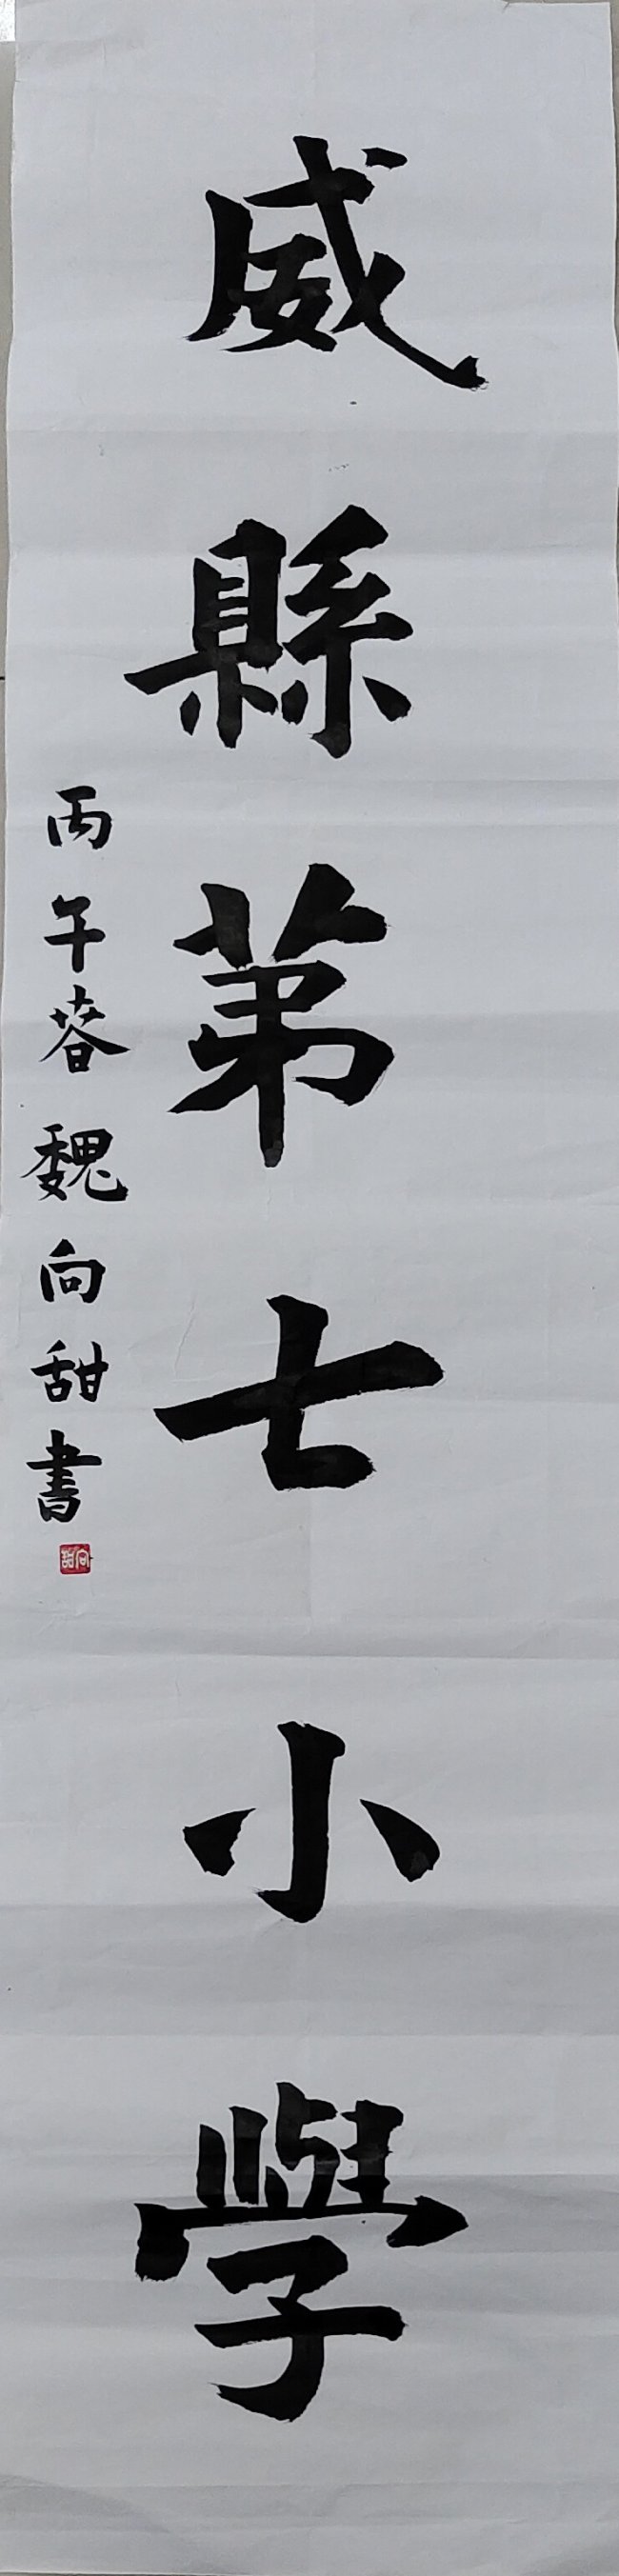 威縣第七小學
丙午春魏向甜書
向甜